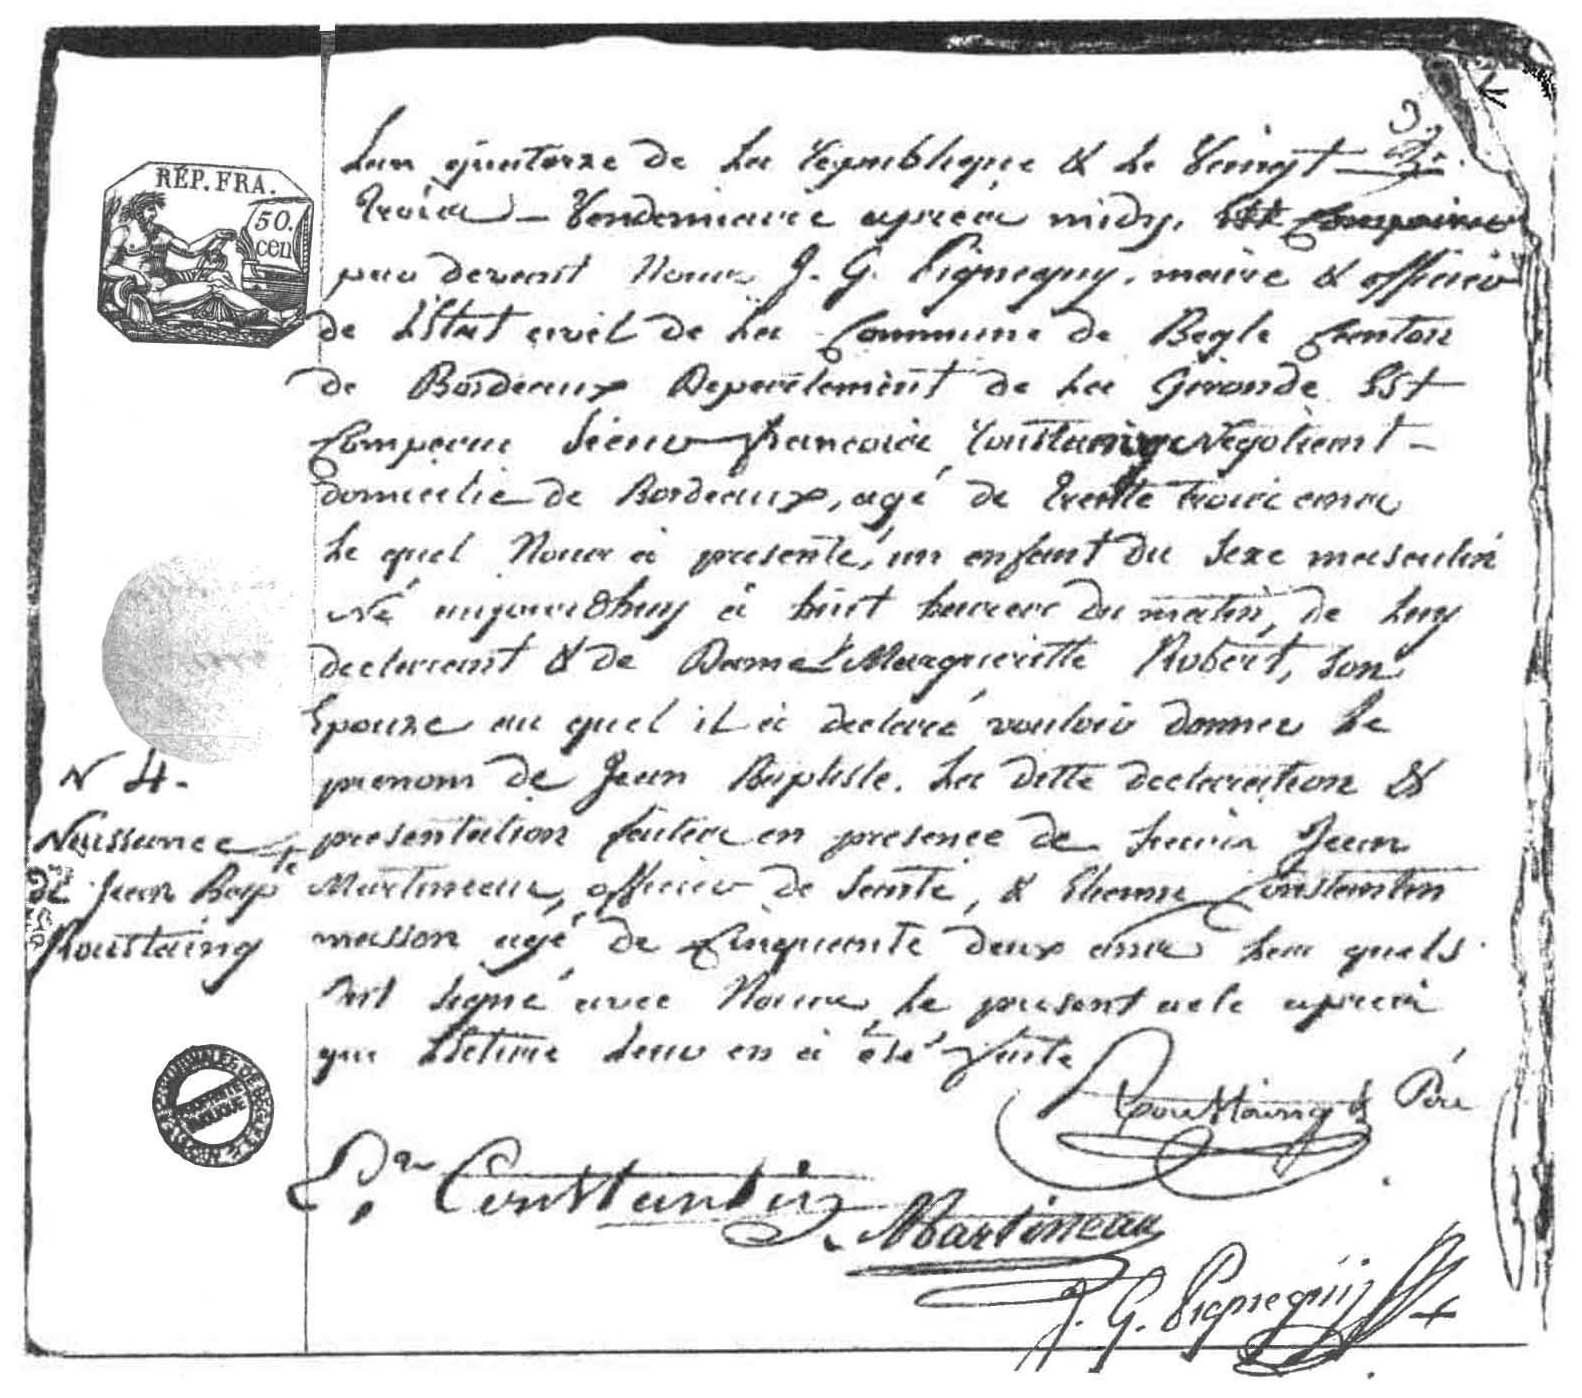 RÉP. FRA.
50.
cen
Lan quatorze de La republique & Le Vaingt
trois Vendemiaire apres midy,
par devant Nous J. G. Pigneguy, maire & officier
de L'Etat civil de La Commune de Begle Canton
de Bordeaux Departement de La Gironde Est
Comparu Sieur francois Roustaing Negotiant
domicilie de Bordeaux, agé de trente trois ans
Le quel Nous à presenté, un enfant du Sexe masculin
Né aujourdhuy à huit heures du matin, de Luy
declarant & de Dame Margueritte Robert, son
Epouze au quel iL à declaré vouloir donner Le
prenom de Jean Baptiste. La ditte declaration &
presentation faites en presence de Jean
Martineau, officier de Santé, & Etienne Constantin
masson agé de Cinquante deux ans Les quels
ont signé avec Nous Le present acte apres
que Lecture Leur en à été faite
N 4.
Naissance
de Jean Bapte
Roustaing
PROPRIÉTÉ
PUBLIQUE
Roustaing Père
Constantin
Martineau
J. G. Pigneguy